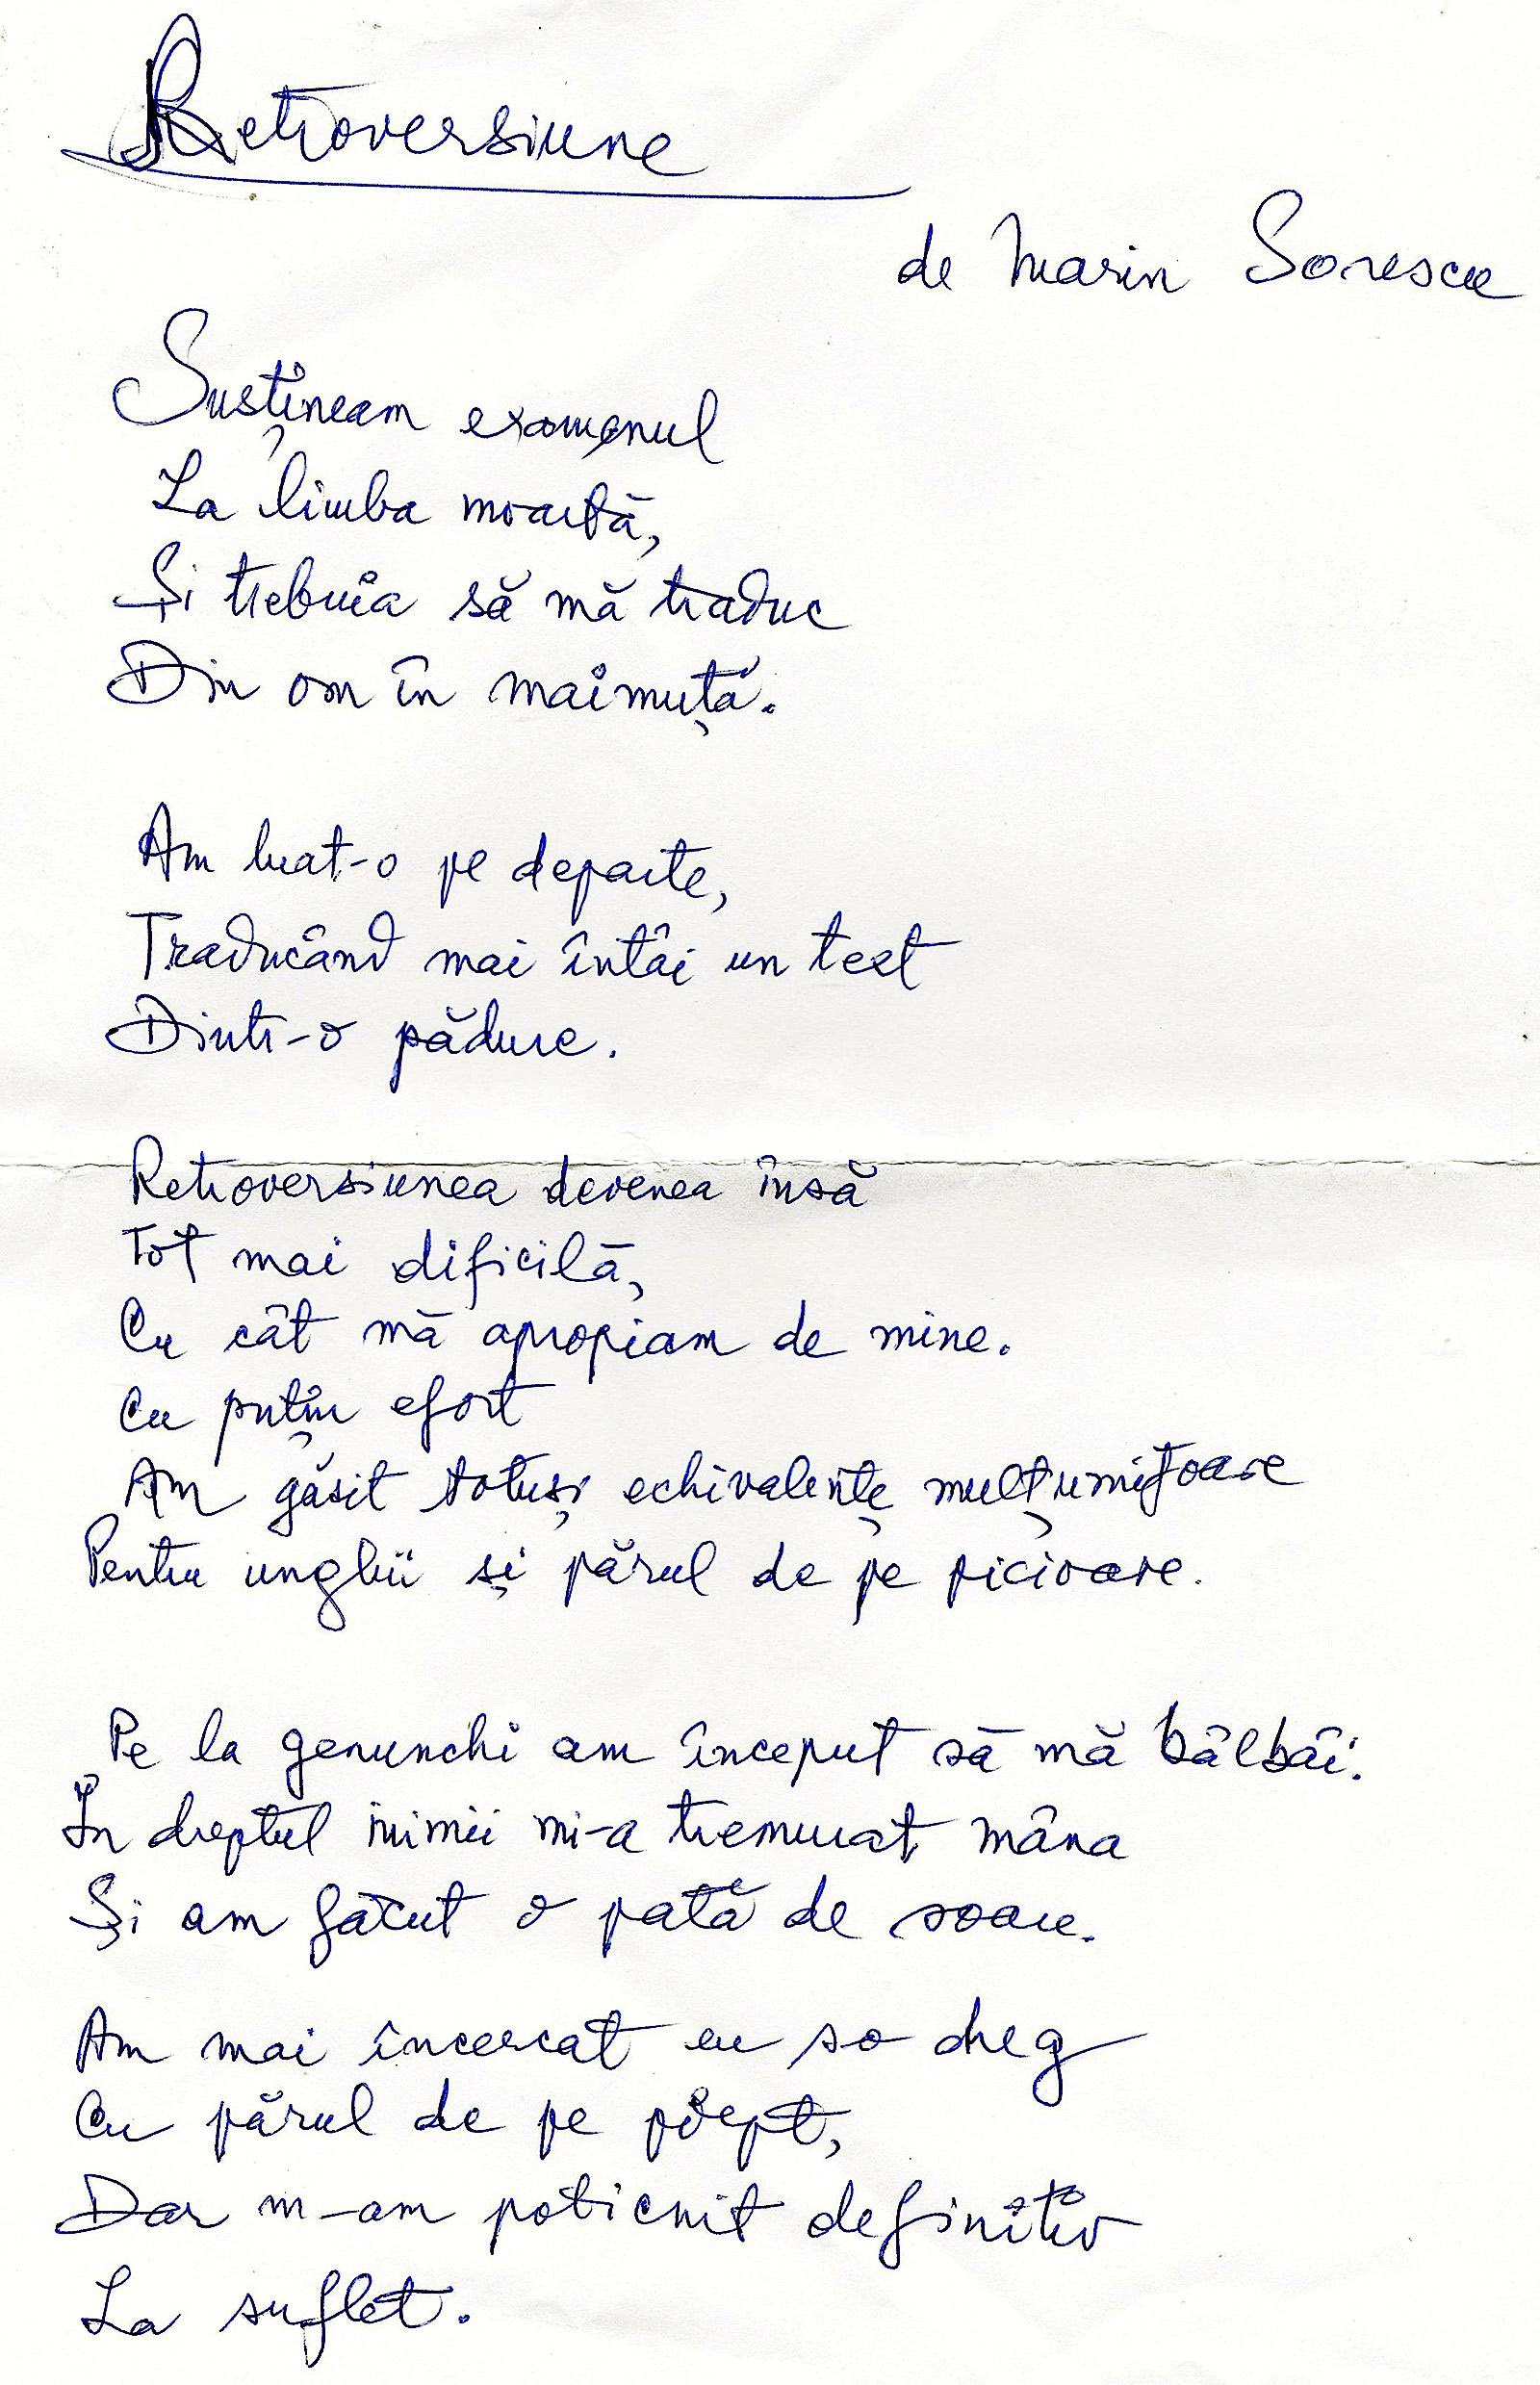 Retroversiune
de Marin Sorescu
Susțineam examenul
La limba moartă,
Și trebuia să mă traduc
Din om în maimuță.
Am luat-o pe departe,
Traducând mai întâi un text
Dintr-o pădure.
Retroversiunea devenea însă
Tot mai dificilă,
Cu cât mă apropiam de mine.
Cu puțin efort
Am găsit totuși echivalențe mulțumitoare
Pentru unghii și părul de pe picioare.
Pe la genunchi am început să mă bâlbâi.
În dreptul inimii mi-a tremurat mâna
Și am făcut o pată de soare.
Am mai încercat eu s-o dreg
Cu părul de pe piept,
Dar m-am poticnit definitiv
La suflet.